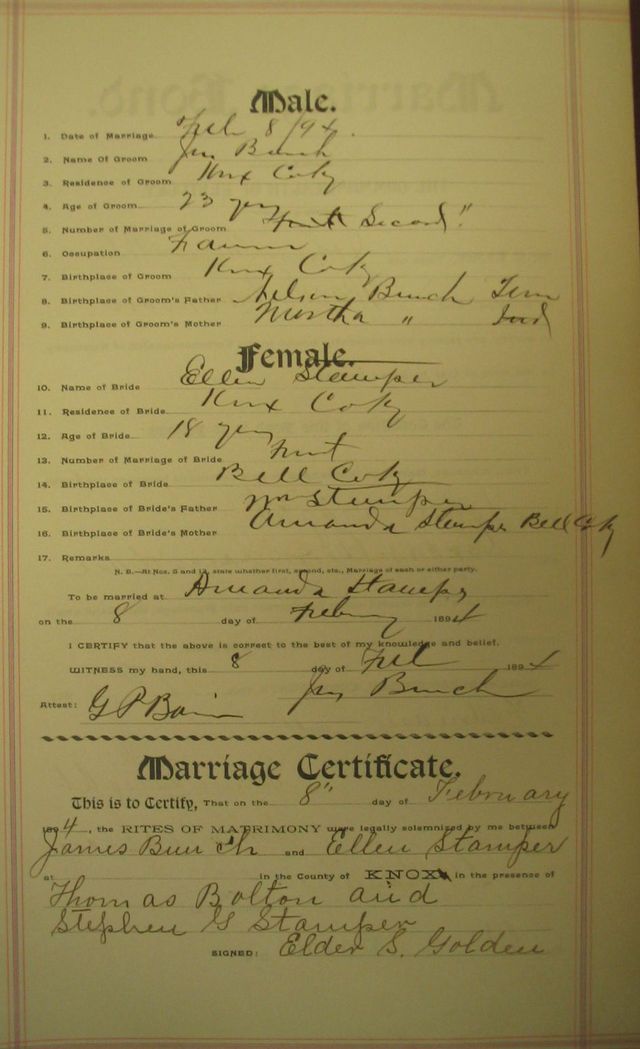 Male.
1. Date of Marriage Feb 8/94.
2. Name Of Groom Jas Bunch
3. Residence of Groom Knx Co Ky
4. Age of Groom 23 yrs
5. Number of Marriage of Groom Second"
6. Occupation Farmer
7. Birthplace of Groom Knx Co Ky
8. Birthplace of Groom's Father Nelson Bunch Tenn
9. Birthplace of Groom's Mother Martha "
Female.
10. Name of Bride Ellen Stamper
11. Residence of Bride Knx Co Ky
12. Age of Bride 18 yrs
13. Number of Marriage of Bride first
14. Birthplace of Bride Bell Co Ky
15. Birthplace of Bride's Father Wm Stamper
16. Birthplace of Bride's Mother Amanda Stamper Bell Co Ky
17. Remarks
N. B.—At Nos. 5 and 13, state whether first, second, etc., Marriage of each or either party.
To be married at Amanda Stamper
on the 8 day of February 1894
I CERTIFY that the above is correct to the best of my knowledge and belief.
WITNESS my hand, this 8 day of Feb 1894
Jas Bunch
Attest: G P Bain
Marriage Certificate.
This is to Certify, That on the 8" day of February
1894, the RITES OF MATRIMONY were legally solemnized by me between
James Bunch and Ellen Stamper
at in the County of KNOX, in the presence of
Thomas Bolton and
Stephen G Stamper
SIGNED: Elder S. Golden